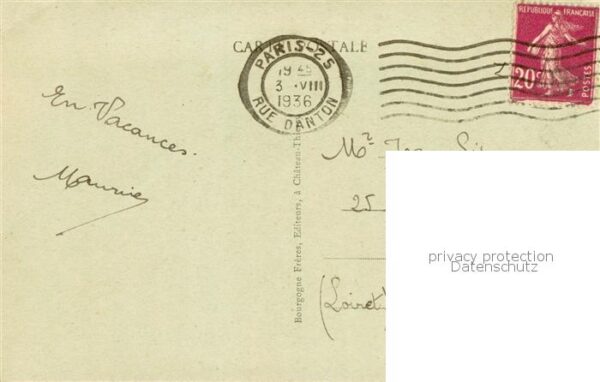 CARTE POSTALE
PARIS-25
19 45
3 · VIII
1936
RUE DANTON
RÉPUBLIQUE FRANÇAISE
20c
POSTES
En Vacances.
Maurice
Bourgogne Frères, Editeurs, à Château-Thi
Mr
25
(Loiret)
privacy protection
Datenschutz